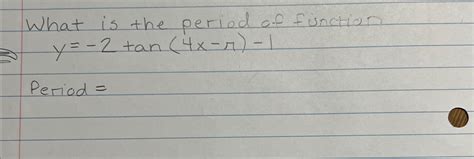 What is the period of function
y = -2 tan (4x - π) - 1
Period =